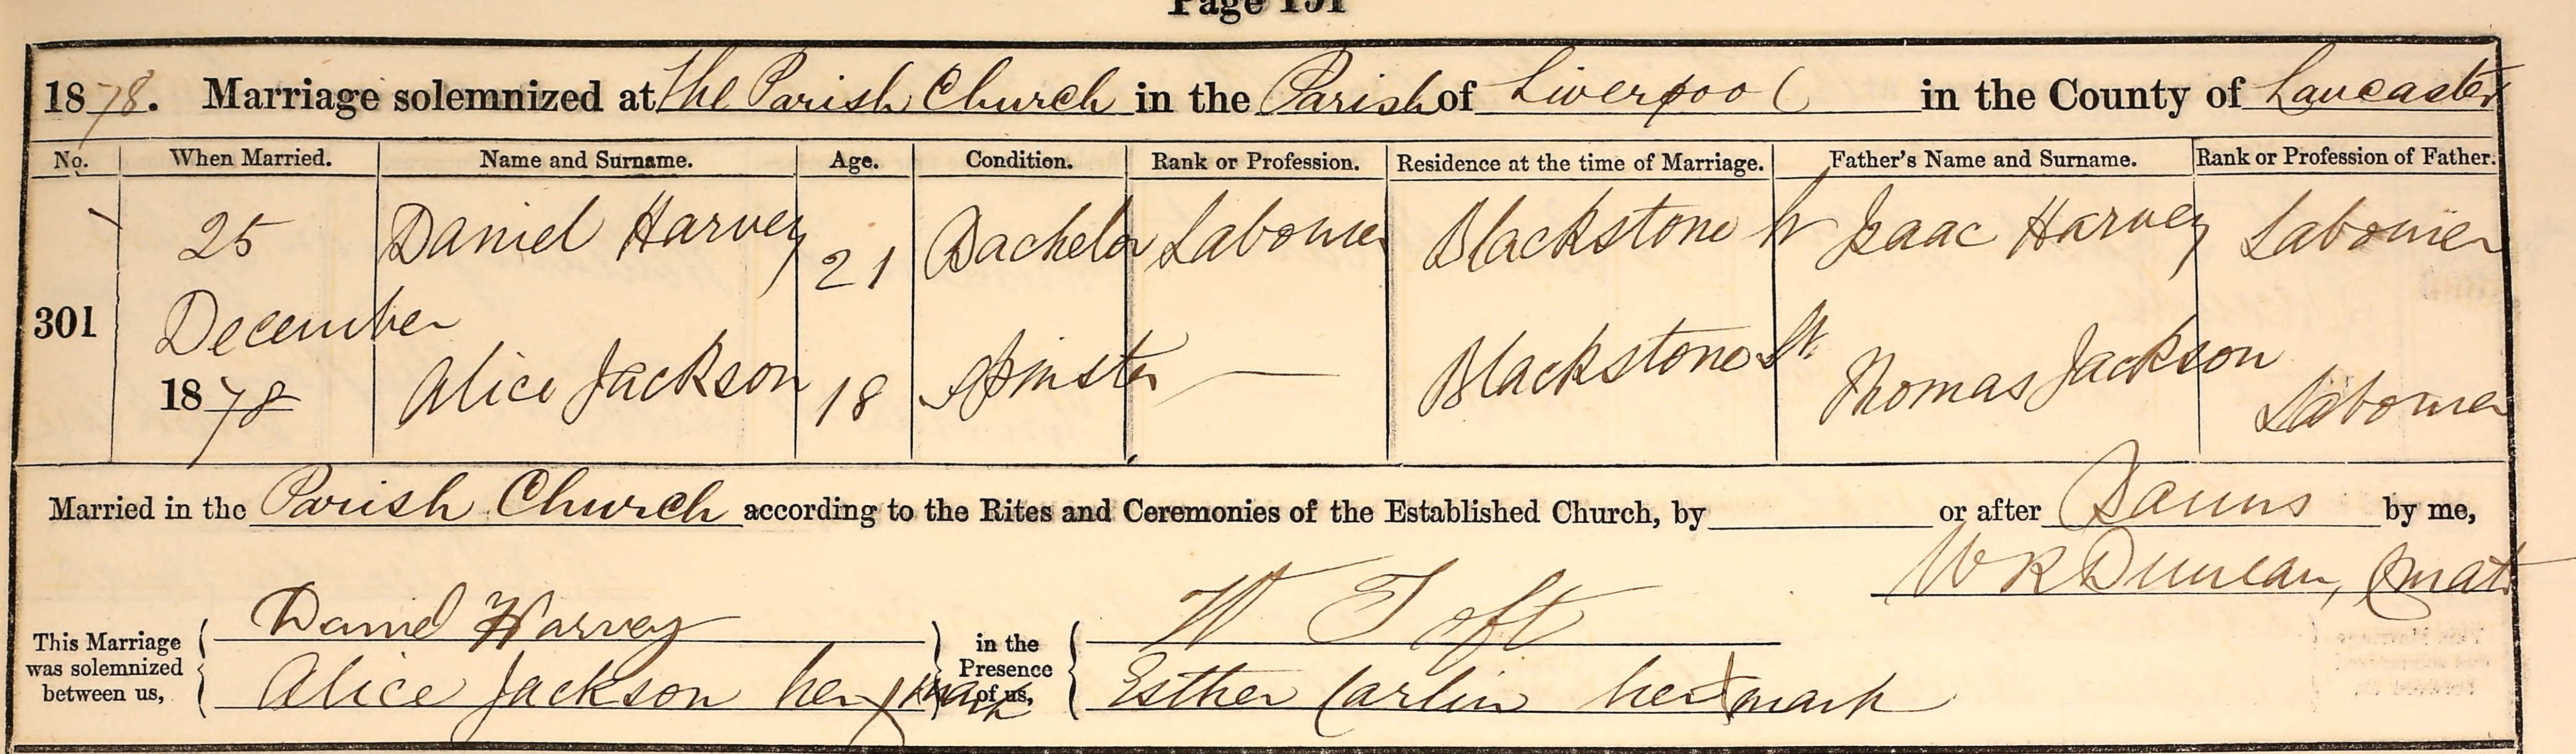 Page 191
1878. Marriage solemnized at the Parish Church in the Parish of Liverpool in the County of Lancaster
No. When Married. Name and Surname. Age. Condition. Rank or Profession. Residence at the time of Marriage. Father's Name and Surname. Rank or Profession of Father.
25 Daniel Harvey 21 Bachelor Labourer Blackstone St Isaac Harvey Labourer
301 December
1878 Alice Jackson 18 Spinster — Blackstone St. Thomas Jackson Labourer
Married in the Parish Church according to the Rites and Ceremonies of the Established Church, by or after Banns by me,
W R Duncan, Curate
This Marriage was solemnized between us, Daniel Harvey in the Presence of us, W Toft
Alice Jackson her X mark Esther Carlin her X mark